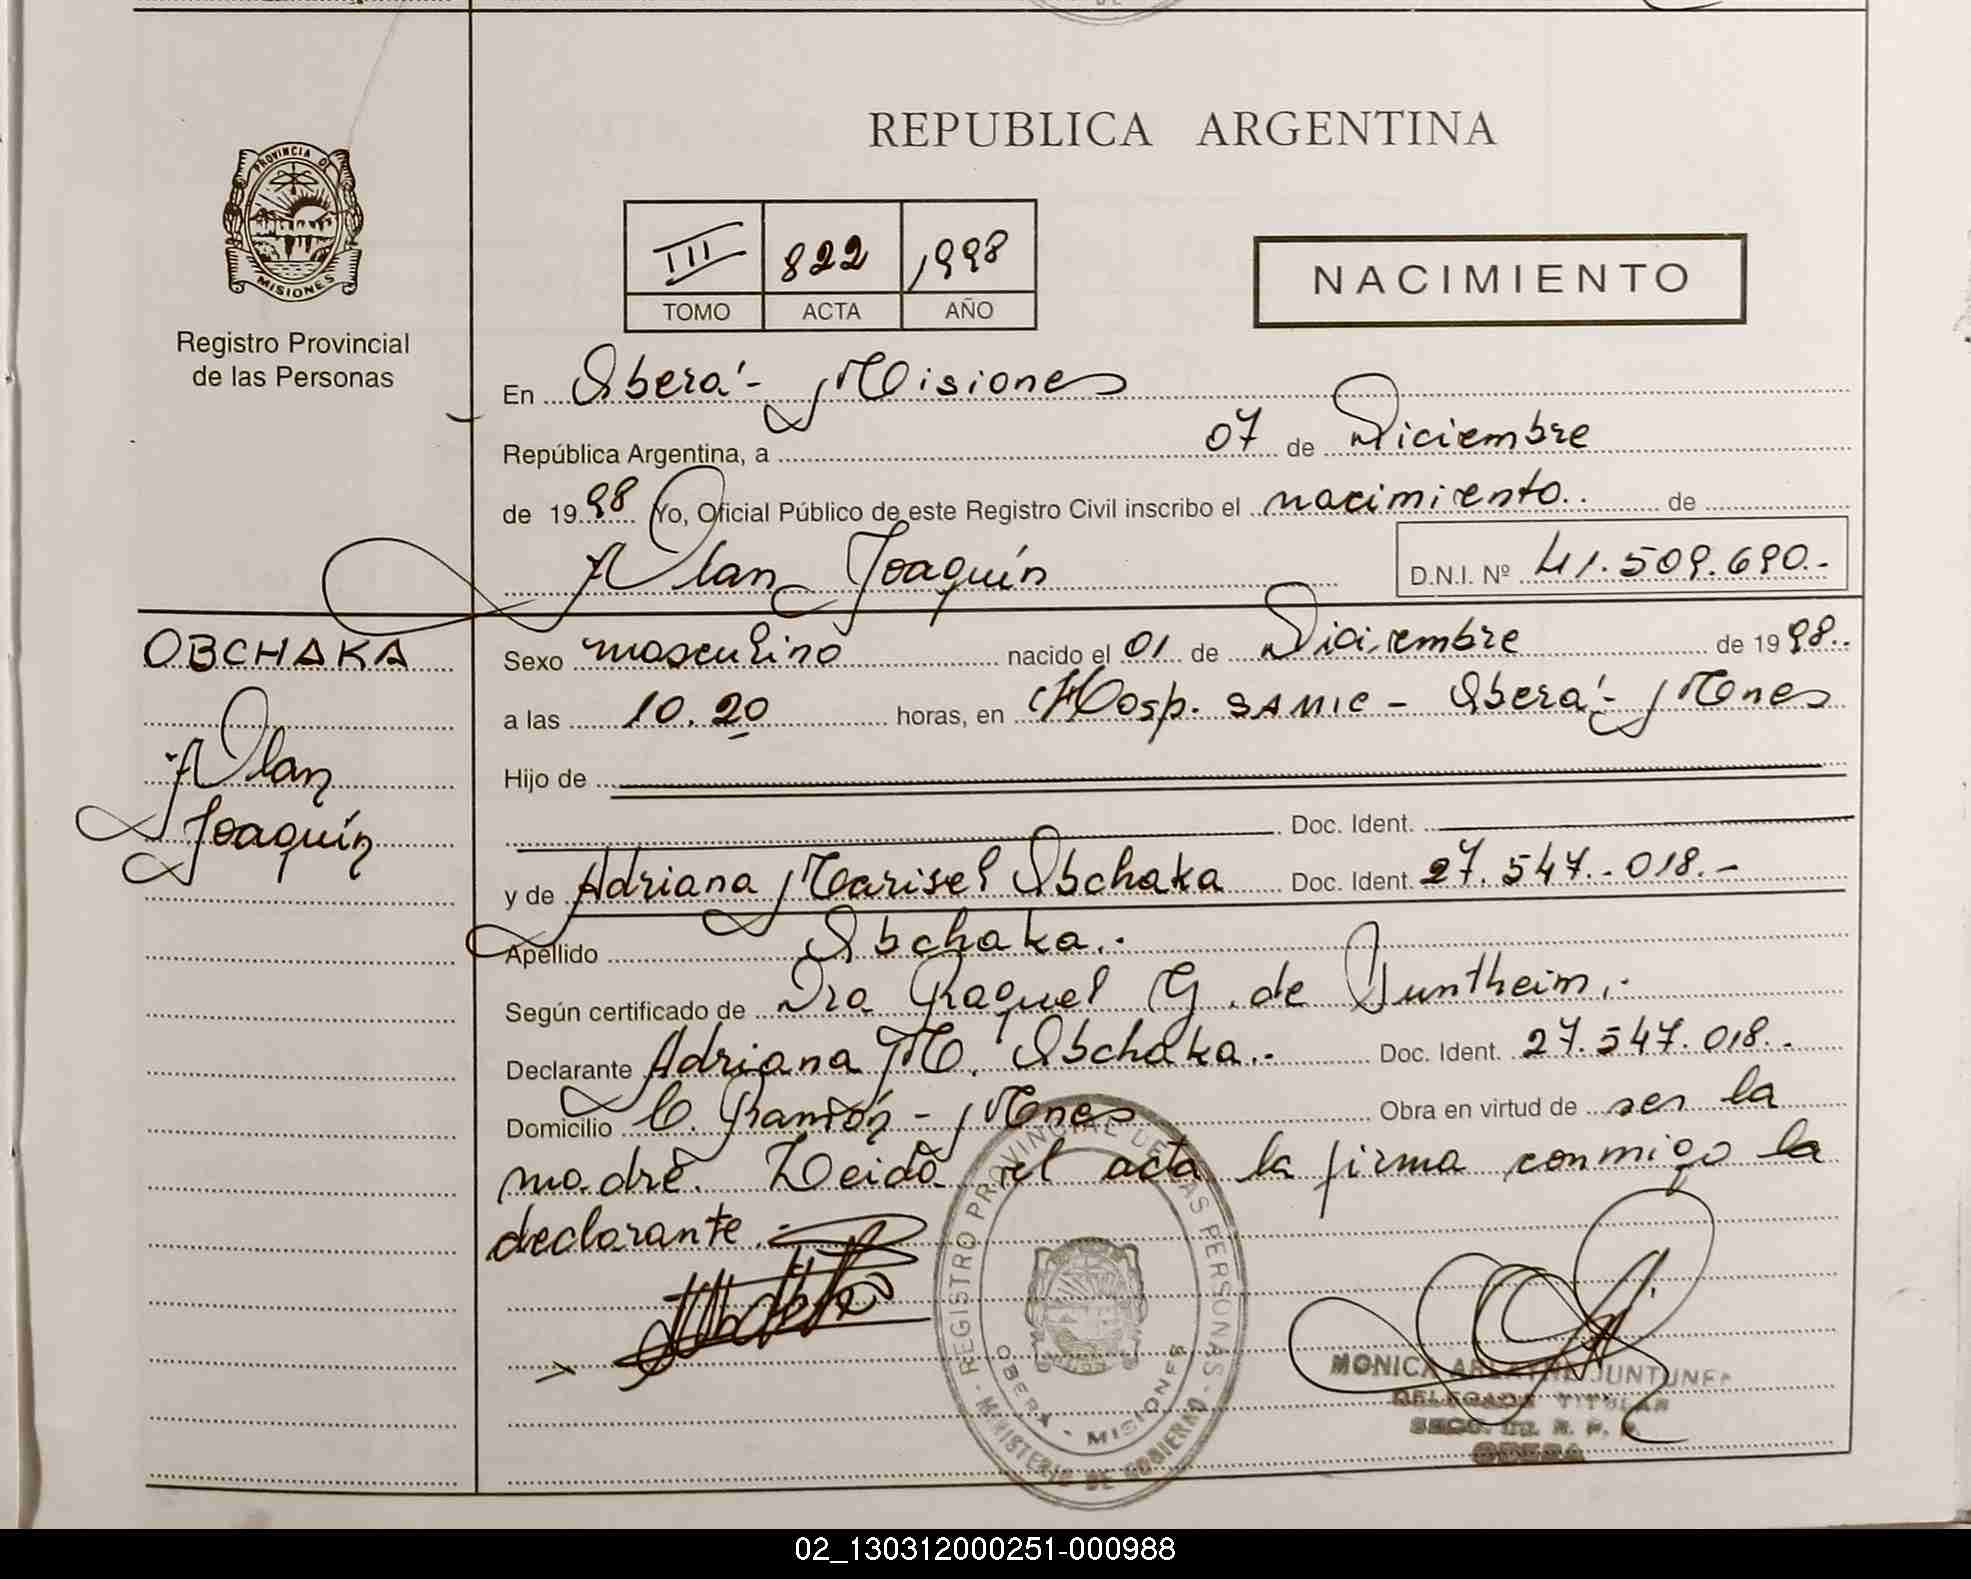 REPUBLICA ARGENTINA
PROVINCIA DE
MISIONES
Registro Provincial
de las Personas
III 822 1998
TOMO ACTA AÑO
NACIMIENTO
En Oberá - Misiones
República Argentina, a 07 de Diciembre
de 1998 Yo, Oficial Público de este Registro Civil inscribo el nacimiento.. de
Alan Joaquín D.N.I. Nº 41.509.690.-
OBCHAKA
Alan
Joaquín
Sexo masculino nacido el 01 de Diciembre de 1998..
a las 10.20 horas, en Hosp. SAMIC - Oberá - Mnes
Hijo de
Doc. Ident.
y de Adriana Marisel Obchaka Doc. Ident. 27.547.018.-
Apellido Obchaka.-
Según certificado de Dra Raquel G. de Juntheim.-
Declarante Adriana M. Obchaka.- Doc. Ident. 27.547.018.-
Domicilio C. Ramón - Mnes Obra en virtud de ser la
madre. Leida el acta la firma conmigo la
declarante.-
REGISTRO PROVINCIAL DE LAS PERSONAS
OBERA - MISIONES
MINISTERIO DE GOBIERNO
MONICA JUNTUNEN
DELEGADA TITULAR
OBERA
02_130312000251-000988